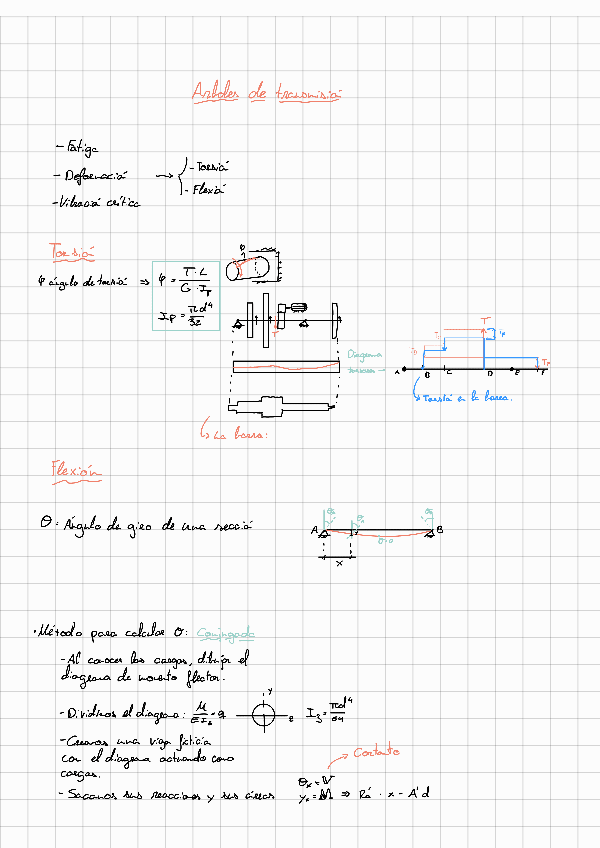 Árboles de transmisió
- Fatiga
- Deformació → - Torsió
- Flexió
- Vibració crítica
Torsió
φ ángulo de torsió ⇒ φ = T·L / G·Ip
Ip = πd⁴/32
φ
T
Diagrama
T
A B C D E F
Torsió en la barra.
La barra:
Flexión
θ: Ángulo de giro de una secció
A B
θ=0
x
· Método para calcular θ: Conjugada
- Al conocer las cargas, dibujar el
diagrama de momento flector.
- Dividimos el diagrama: M/EIz = q
y
z
Iz = πd⁴/64
- Creamos una viga ficticia
con el diagrama actuando como
cargas.
Cortante
- Sacamos sus reacciones y sus áreas
θx = V
yx = M ⇒ Rá · x - A'd